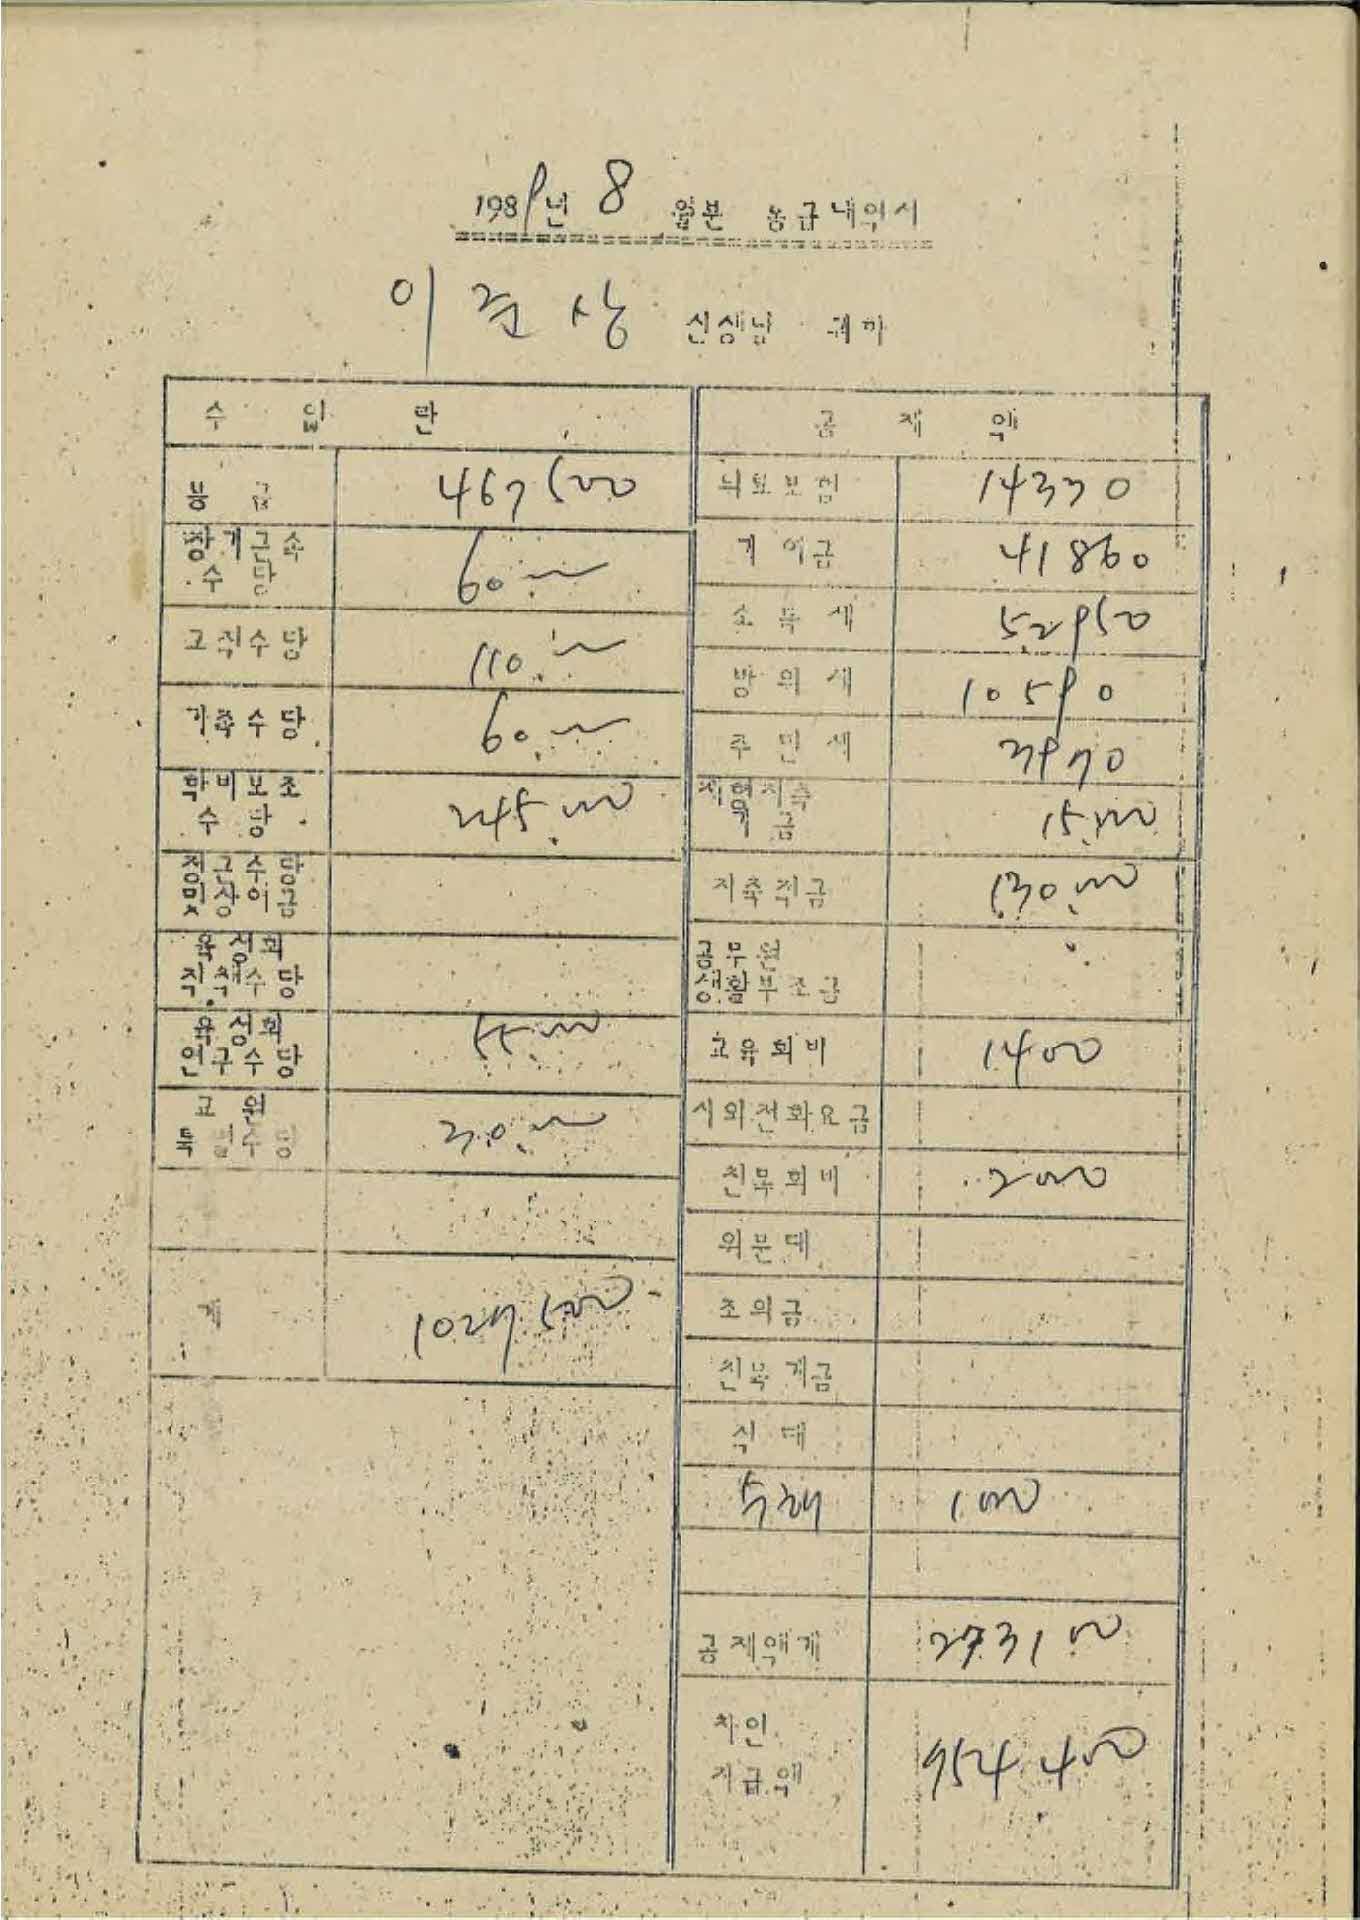 1989년 8 월분 봉급내역서
이 준 상 선생님 귀하
수 입 란
봉 급 467500
장기근속
수 당 60.000
교직수당 110.000
가족수당 60.000
학비보조
수 당 245.000
정근수당
및상여금
육성회
직책수당
육성회
연구수당 55.000
교 원
특별수당 30.000
계 1027.500
공 제 액
의료보험 14370
기여금 41860
소득세 52950
방위세 10590
주민세 3970
저축
기금 15.000
저축적금 130.000
공무원
생활부조금
교육회비 1400
시외전화요금
친목회비 2000
위문대
조의금
친목계금
식 대
수해 1000
공제액계 273100
차인
지급액 754.400